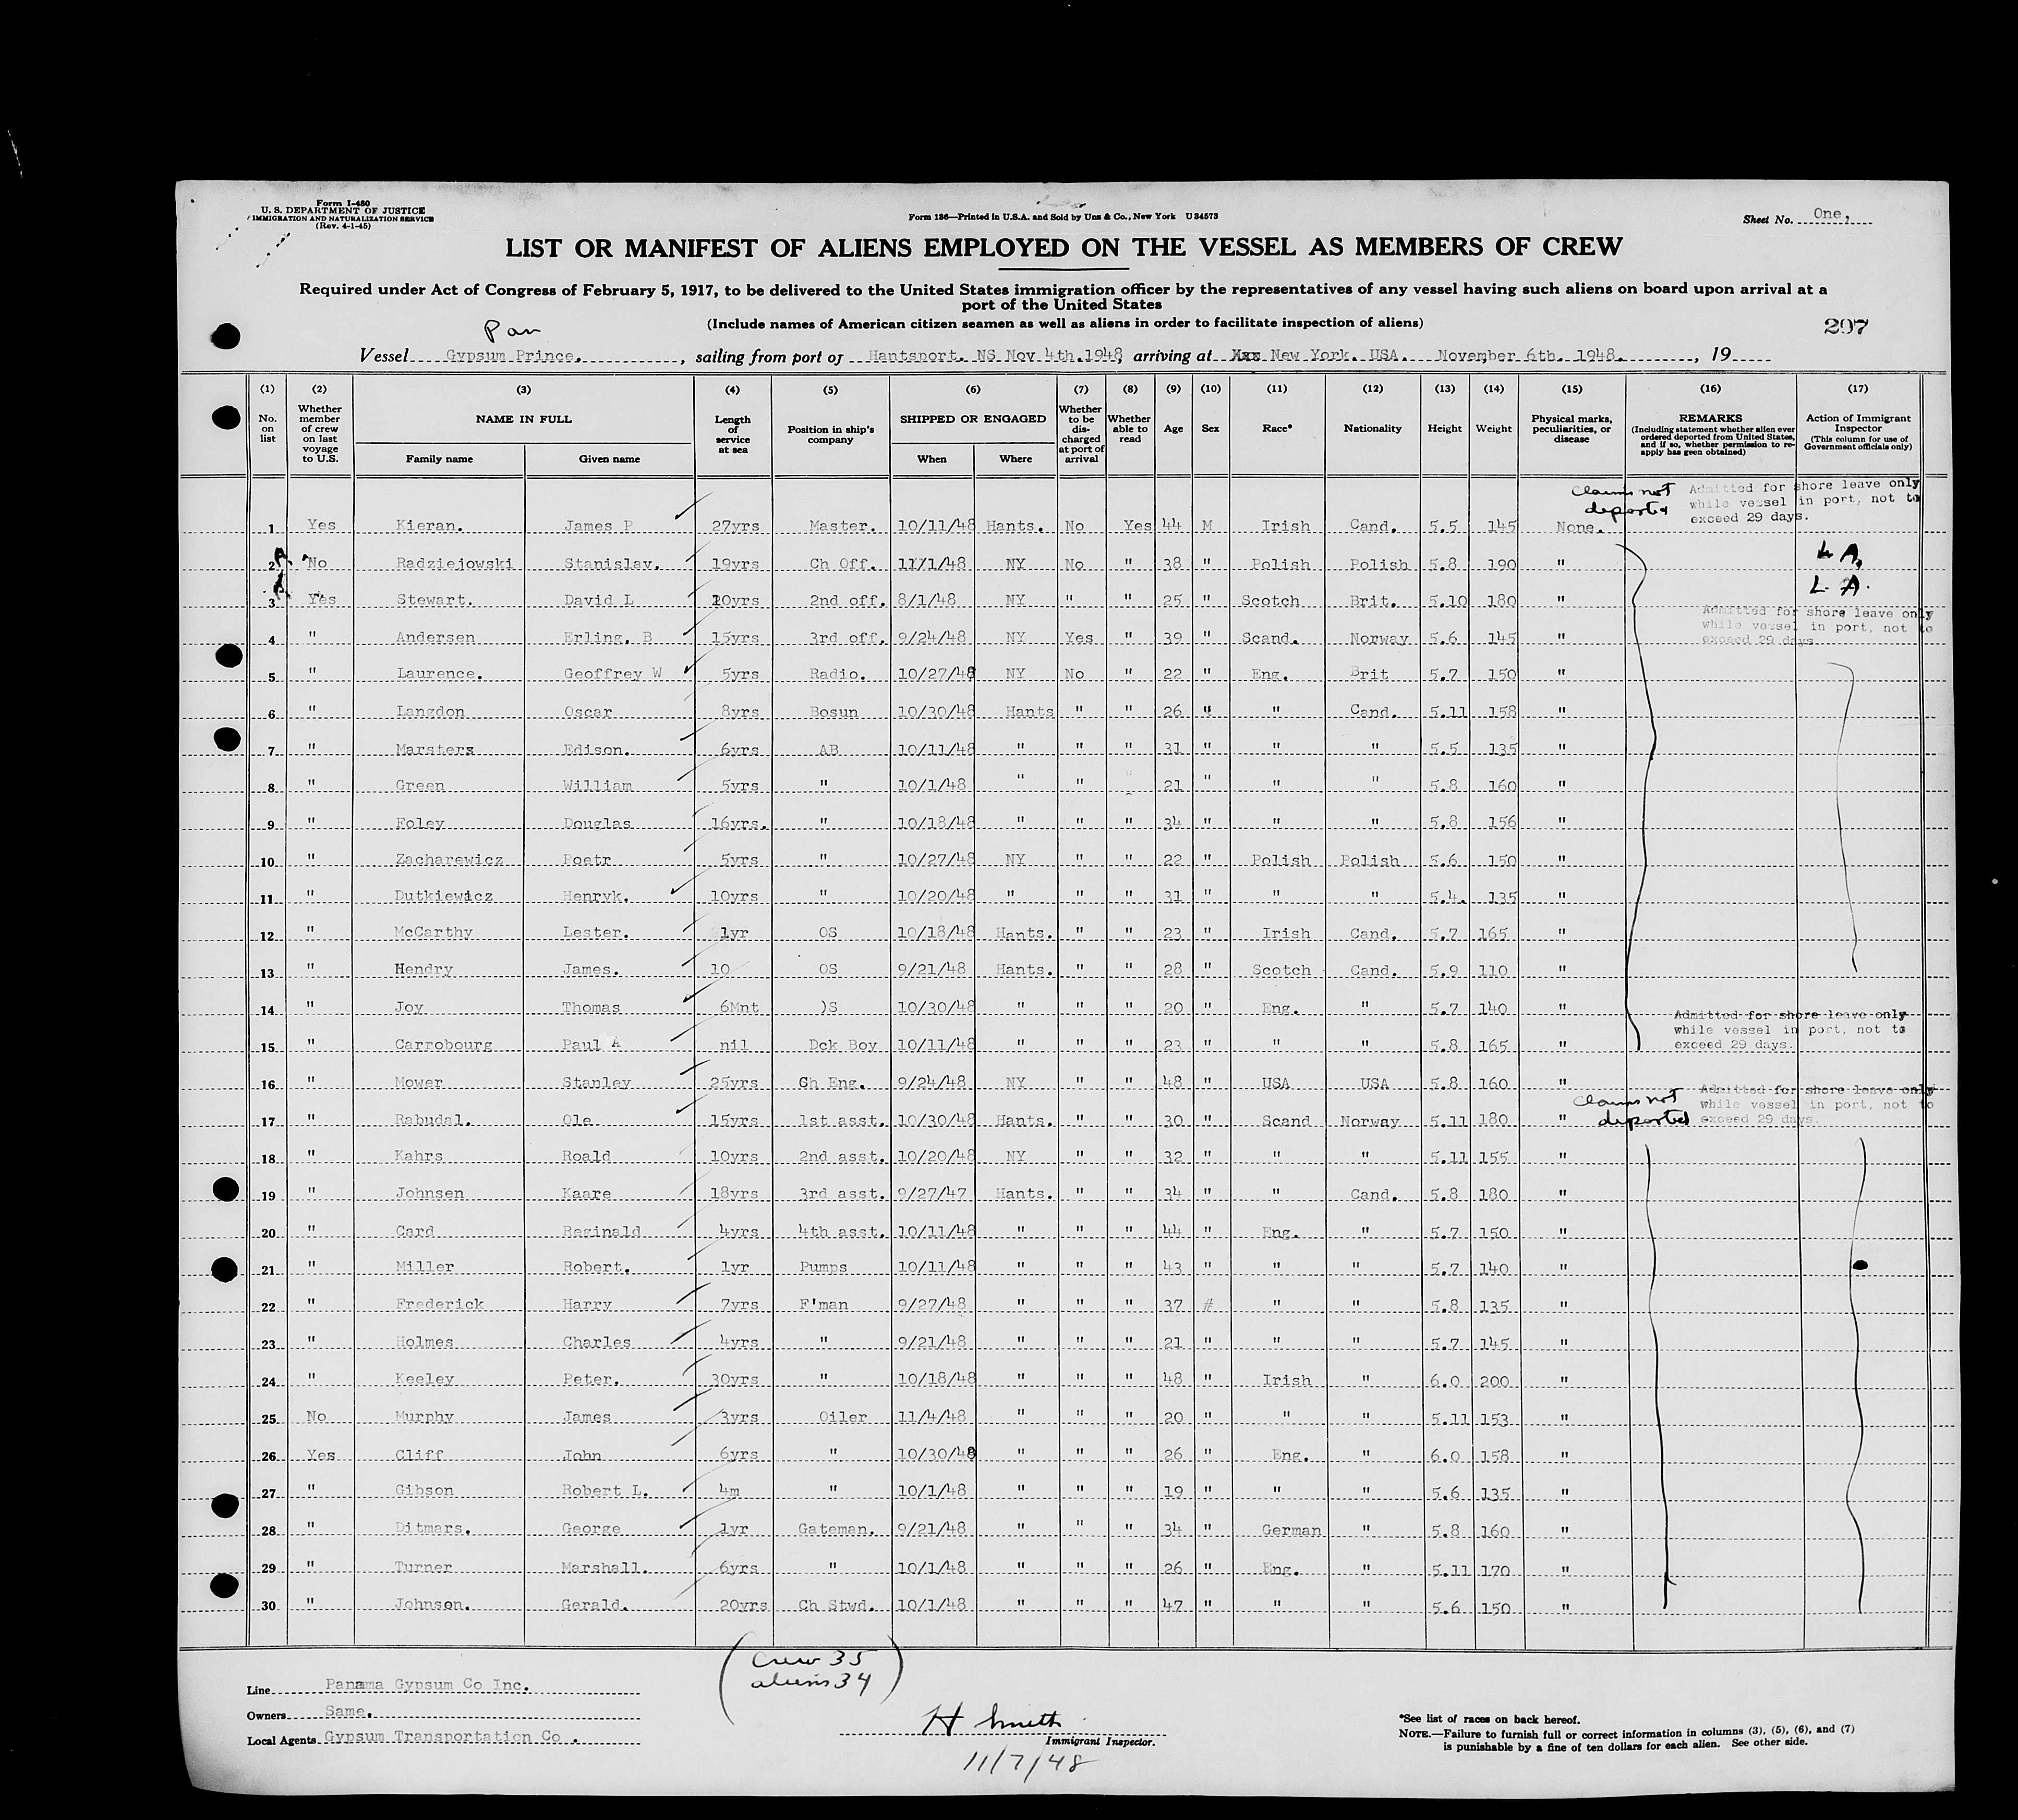 Form I-480
U. S. DEPARTMENT OF JUSTICE
IMMIGRATION AND NATURALIZATION SERVICE
(Rev. 4-1-45)
Form 136—Printed in U.S.A. and Sold by Unz & Co., New York U 34573
Sheet No. One,
LIST OR MANIFEST OF ALIENS EMPLOYED ON THE VESSEL AS MEMBERS OF CREW
Required under Act of Congress of February 5, 1917, to be delivered to the United States immigration officer by the representatives of any vessel having such aliens on board upon arrival at a
port of the United States
(Include names of American citizen seamen as well as aliens in order to facilitate inspection of aliens)
Pan
297
Vessel Gypsum Prince. , sailing from port of Hantsport. NS Nov 4th.1948, arriving at Xxx New York. USA. November 6th. 1948. , 19
(1) (2) (3) (4) (5) (6) (7) (8) (9) (10) (11) (12) (13) (14) (15) (16) (17)
No. on list Whether member of crew on last voyage to U.S. NAME IN FULL Family name Given name Length of service at sea Position in ship's company SHIPPED OR ENGAGED When Where Whether to be discharged at port of arrival Whether able to read Age Sex Race* Nationality Height Weight Physical marks, peculiarities, or disease REMARKS (Including statement whether alien ever ordered deported from United States, and if so, whether permission to reapply has geen obtained) Action of Immigrant Inspector (This column for use of Government officials only)
claims not deported Admitted for shore leave only while vessel in port, not to exceed 29 days.
1 Yes Kieran. James P 27yrs Master. 10/11/48 Hants. No Yes 44 M Irish Cand. 5.5 145 None.
2 No Radziejowski Stanislav. 19yrs Ch Off. 11/1/48 NY No " 38 " Polish Polish 5.8 190 " L A.
3 Yes Stewart. David L 10yrs 2nd off. 8/1/48 NY " " 25 " Scotch Brit. 5.10 180 " L. A.
Admitted for shore leave only while vessel in port, not to exceed 29 days.
4 " Andersen Erling. B 15yrs 3rd off. 9/24/48 NY Yes " 39 " Scand. Norway 5.6 145 "
5 " Laurence. Geoffrey W 5yrs Radio. 10/27/48 NY No " 22 " Eng. Brit 5.7 150 "
6 " Langdon Oscar 8yrs Bosun 10/30/48 Hants " " 26 " " Cand. 5.11 158 "
7 " Marsters Edison. 6yrs AB 10/11/48 " " " 31 " " " 5.5 135 "
8 " Green William 5yrs " 10/1/48 " " " 21 " " " 5.8 160 "
9 " Foley Douglas 16yrs. " 10/18/48 " " " 34 " " " 5.8 156 "
10 " Zacharewicz Poetr 5yrs " 10/27/48 NY " " 22 " Polish Polish 5.6 150 "
11 " Dutkiewicz Henryk. 10yrs " 10/20/48 " " " 31 " " " 5.4. 135 "
12 " McCarthy Lester. 1yr OS 10/18/48 Hants. " " 23 " Irish Cand. 5.7 165 "
13 " Hendry James. 10 OS 9/21/48 Hants. " " 28 " Scotch Cand. 5.9 110 "
14 " Joy Thomas 6Mnt )S 10/30/48 " " " 20 " Eng. " 5.7 140 "
Admitted for shore leave only while vessel in port, not to exceed 29 days.
15 " Carrobourg Paul A nil Dck Boy 10/11/48 " " " 23 " " " 5.8 165 "
16 " Mower Stanley 25yrs Ch Eng. 9/24/48 NY " " 48 " USA USA 5.8 160 "
claims not deported Admitted for shore leave only while vessel in port, not to exceed 29 days.
17 " Rabudal. Ole 15yrs 1st asst. 10/30/48 Hants. " " 30 " Scand Norway 5.11 180 "
18 " Kahrs Roald 10yrs 2nd asst. 10/20/48 NY " " 32 " " " 5.11 155 "
19 " Johnsen Kaare 18yrs 3rd asst. 9/27/47 Hants. " " 34 " " Cand. 5.8 180 "
20 " Card Reginald 4yrs 4th asst. 10/11/48 " " " 44 " Eng. " 5.7 150 "
21 " Miller Robert. 1yr Pumps 10/11/48 " " " 43 " " " 5.7 140 "
22 " Frederick Harry 7yrs F'man 9/27/48 " " " 37 # " " 5.8 135 "
23 " Holmes Charles 4yrs " 9/21/48 " " " 21 " " " 5.7 145 "
24 " Keeley Peter. 30yrs " 10/18/48 " " " 48 " Irish " 6.0 200 "
25 No Murphy James 3yrs Oiler 11/4/48 " " " 20 " " " 5.11 153 "
26 Yes Cliff John 6yrs " 10/30/48 " " " 26 " Eng. " 6.0 158 "
27 " Gibson Robert L. 4m " 10/1/48 " " " 19 " " " 5.6 135 "
28 " Ditmars. George 1yr Gateman. 9/21/48 " " " 34 " German " 5.8 160 "
29 " Turner Marshall. 6yrs " 10/1/48 " " " 26 " Eng. " 5.11 170 "
30 " Johnson. Gerald. 20yrs Ch Stwd. 10/1/48 " " " 47 " " " 5.6 150 "
(Crew 35
aliens 34)
Line Panama Gypsum Co Inc.
Owners Same.
Local Agents Gypsum Transportation Co .
H Smith
Immigrant Inspector.
11/7/48
*See list of races on back hereof.
NOTE.—Failure to furnish full or correct information in columns (3), (5), (6), and (7)
is punishable by a fine of ten dollars for each alien. See other side.